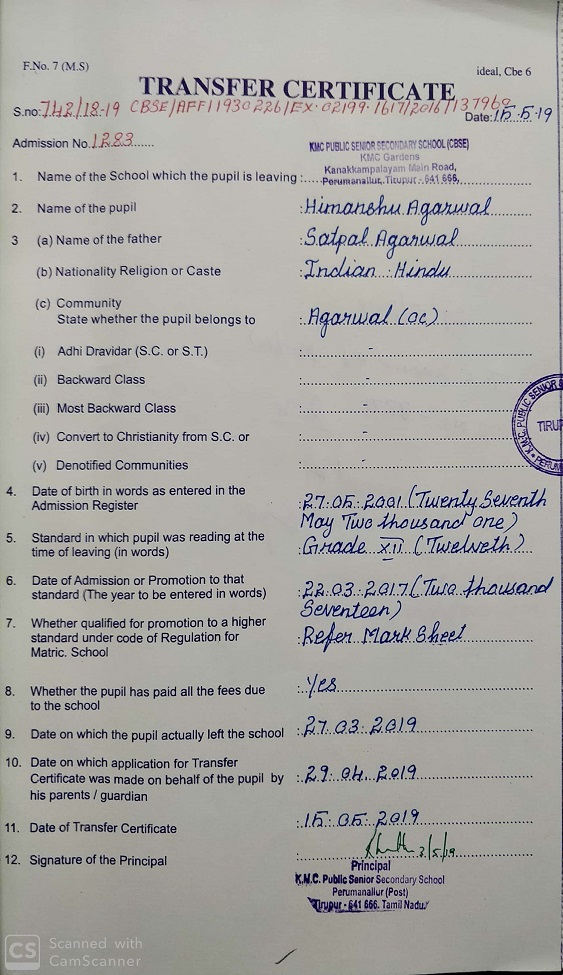 F.No. 7 (M.S)
ideal, Cbe 6
TRANSFER CERTIFICATE
S.no: 742/18-19 CBSE/AFF/1930226/EX-02199-1617/2016/137960
Date: 15.5.19
Admission No. 1283
KMC PUBLIC SENIOR SECONDARY SCHOOL (CBSE)
KMC Gardens
Kanakkampalayam Main Road,
1. Name of the School which the pupil is leaving : Perumanallur, Tirupur - 641 666.
2. Name of the pupil : Himanshu Agarwal
3 (a) Name of the father : Satpal Agarwal
(b) Nationality Religion or Caste : Indian - Hindu
(c) Community
State whether the pupil belongs to : Agarwal (oc)
(i) Adhi Dravidar (S.C. or S.T.) : -
(ii) Backward Class : -
(iii) Most Backward Class : -
(iv) Convert to Christianity from S.C. or : -
(v) Denotified Communities : -
K.M.C. PUBLIC SENIOR
TIRUP
4. Date of birth in words as entered in the
Admission Register
: 27.05.2001 (Twenty Seventh
May Two thousand one)
5. Standard in which pupil was reading at the
time of leaving (in words)
: Grade XII (Twelveth)
6. Date of Admission or Promotion to that
standard (The year to be entered in words)
: 22.03.2017 (Two thousand
Seventeen)
7. Whether qualified for promotion to a higher
standard under code of Regulation for
Matric. School
: Refer Mark Sheet
8. Whether the pupil has paid all the fees due
to the school
: Yes
9. Date on which the pupil actually left the school : 27.03.2019
10. Date on which application for Transfer
Certificate was made on behalf of the pupil by
his parents / guardian
: 29.04.2019
11. Date of Transfer Certificate : 15.05.2019
12. Signature of the Principal :
Principal
K.M.C. Public Senior Secondary School
Perumanallur (Post)
Tirupur - 641 666. Tamil Nadu.
CS Scanned with
CamScanner